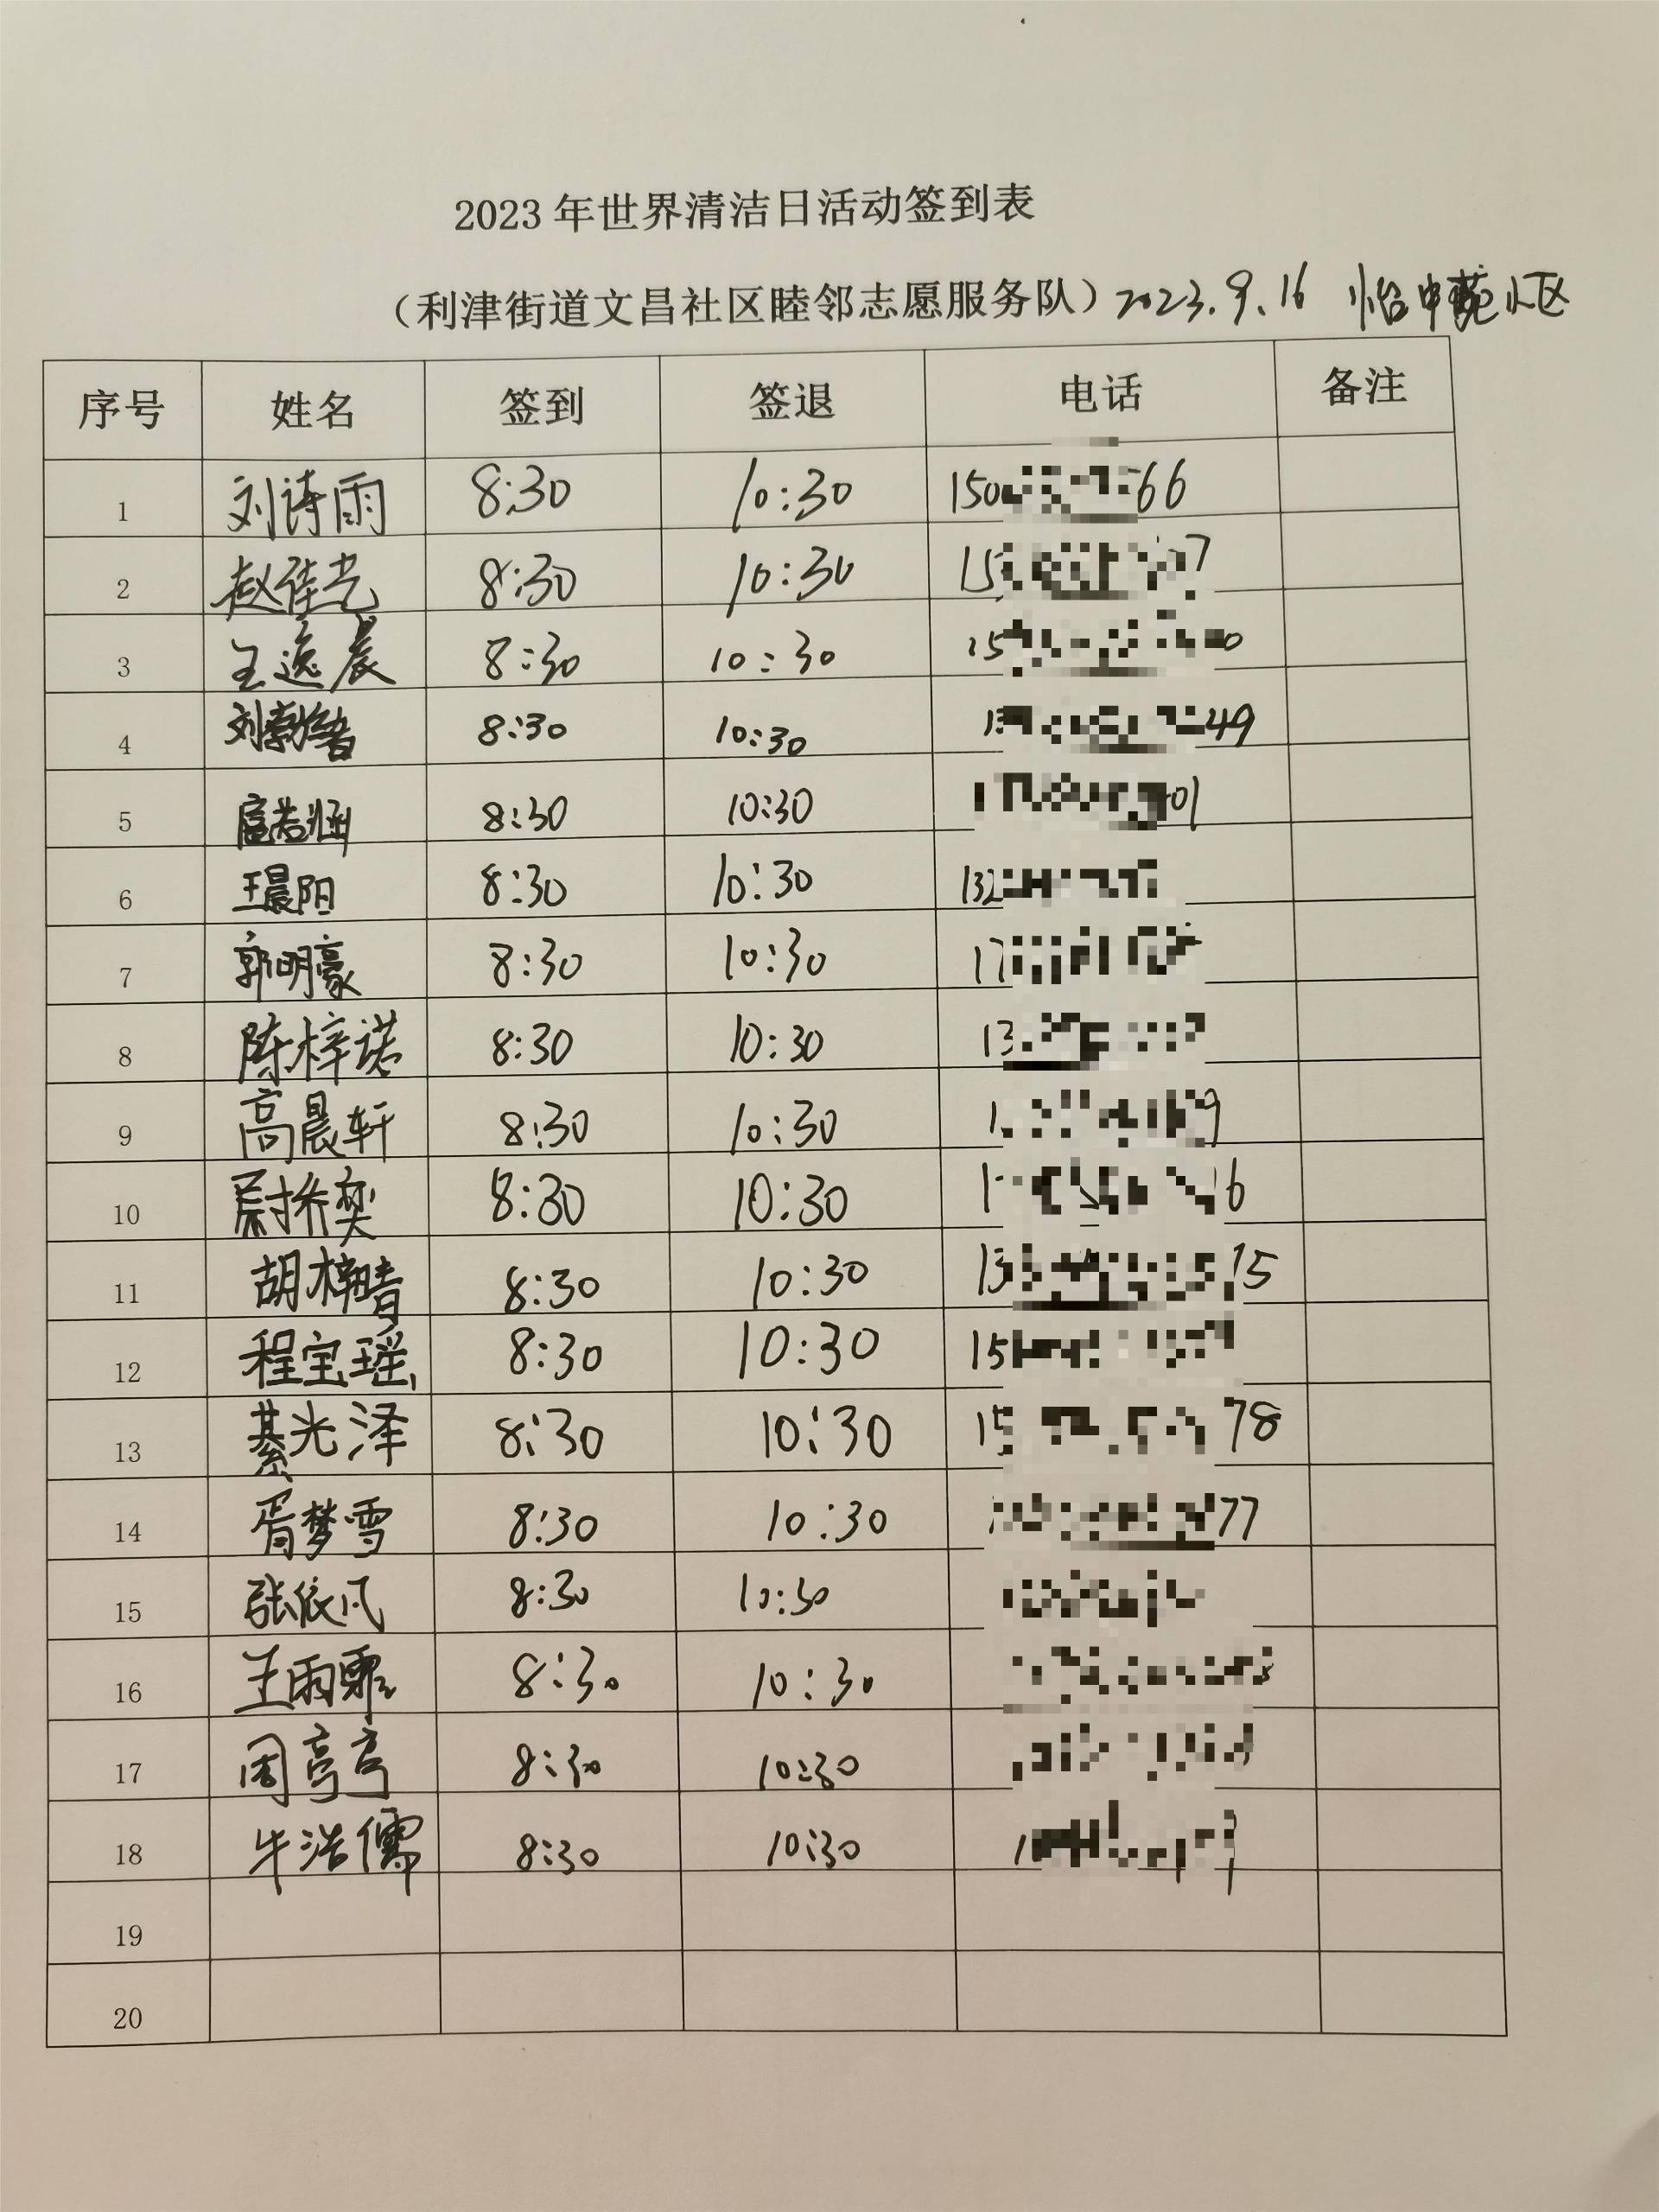 2023年世界清洁日活动签到表
（利津街道文昌社区睦邻志愿服务队）2023.9.16 怡申苑小区
序号 姓名 签到 签退 电话 备注
1 刘诗雨 8:30 10:30 150 66
2 赵佳艺 8:30 10:30 15 7
3 王逸晨 8:30 10:30 15 0
4 8:30 10:30 1 49
5 扈若涵 8:30 10:30 1 01
6 王晨阳 8:30 10:30 132
7 郭明豪 8:30 10:30 17
8 陈梓诺 8:30 10:30 13
9 高晨轩 8:30 10:30 1 9
10 尉乔奕 8:30 10:30 1 6
11 胡梓晴 8:30 10:30 13 15
12 程宝瑶 8:30 10:30 15
13 綦光泽 8:30 10:30 15 78
14 胥梦雪 8:30 10:30 77
15 张依凡 8:30 10:30
16 王雨霏 8:30 10:30
17 周亭亭 8:30 10:30
18 牛浩儒 8:30 10:30 1
19
20